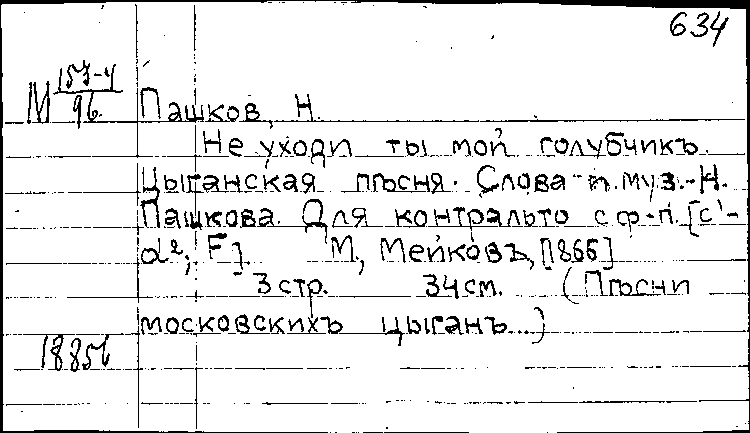 634
М 157-4/96.
Пашков, Н.
Не уходи ты мой голубчикъ.
Цыганская пѣсня. Слова и муз. Н.
Пашкова. Для контральто с ф-п. [c¹-
d², F]. М., Мейковъ, [1866]
3 стр. 34 см. (Пѣсни
московскихъ цыганъ...)